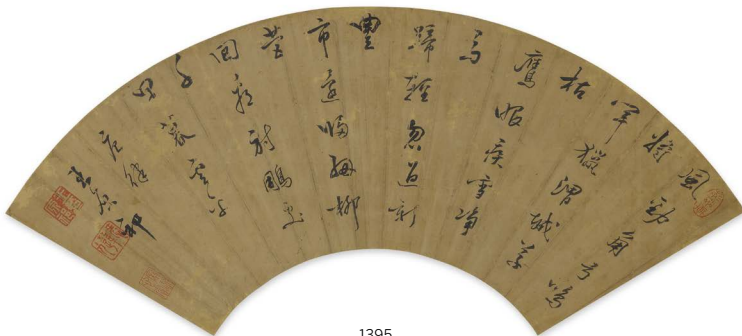 風勁角弓鳴
將
軍獵渭城草
枯
鷹眼疾雪淨
馬
蹄輕忽過新
豐
市還歸細柳
營
回看射鵰處
千
里暮雲平
1395